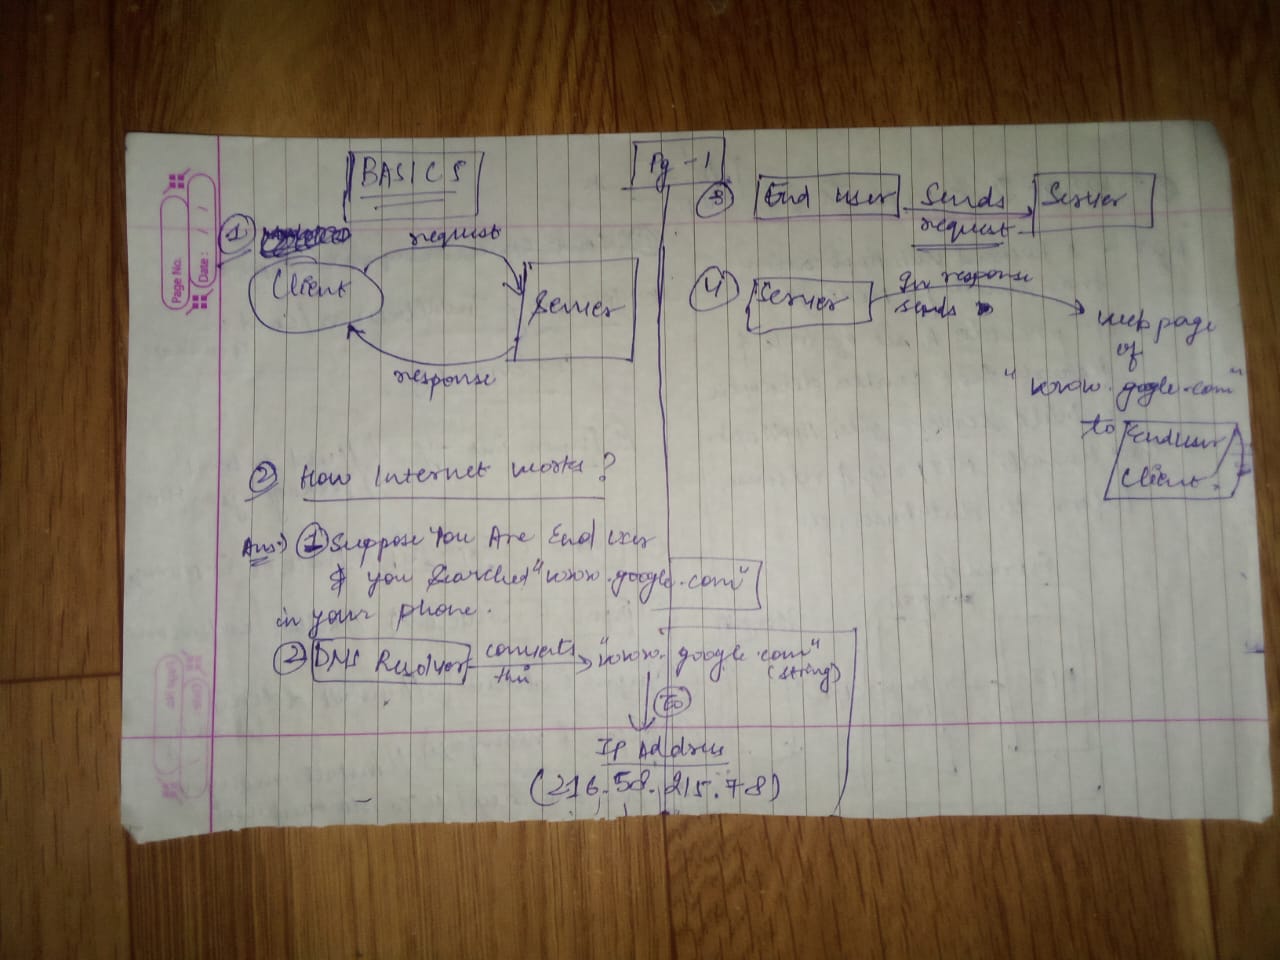 BASICS
Pg - 1
Page No.
Date : / /
1
request
Client
Server
response
2 How Internet works?
Ans:) 1 Suppose You Are End user
& you Searched "www.google.com"
in your phone.
2 DNS Resolver converts this "www.google.com"
(string)
To
IP Address
(216.58.215.78)
3 End user Sends request Server
4 Server In response sends
webpage
of
"www.google.com"
to End user
Client.